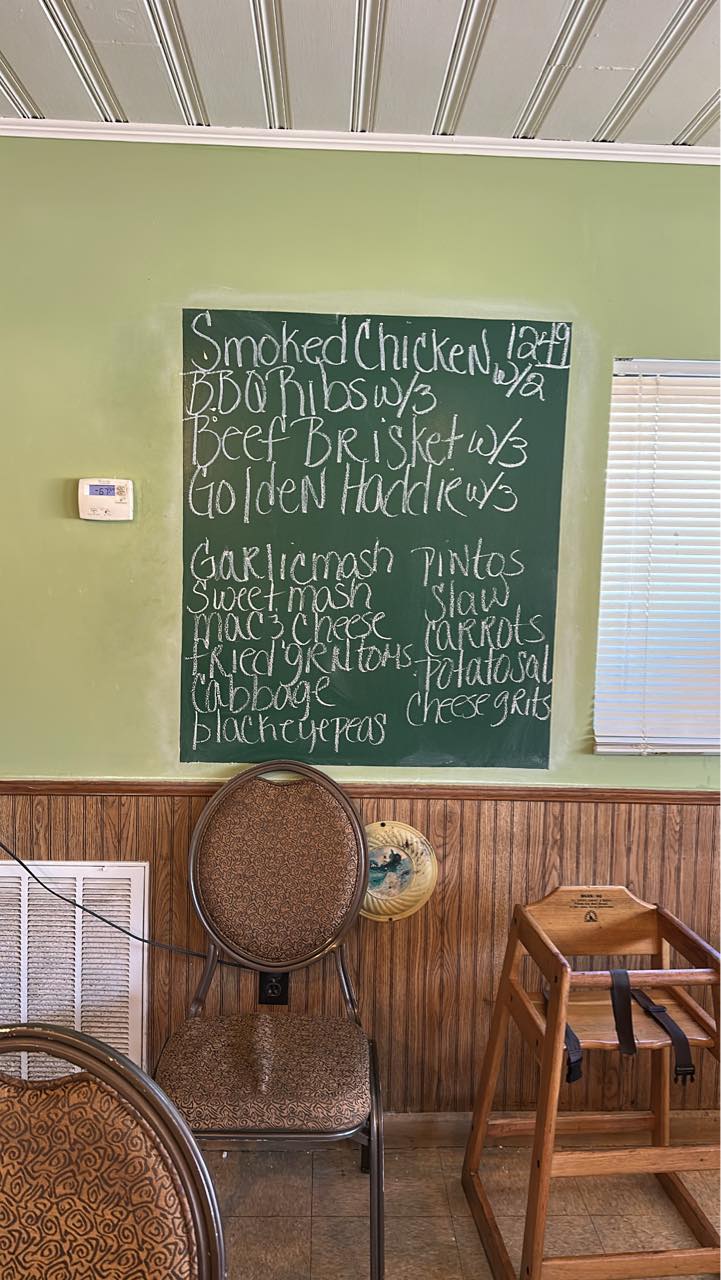 Smoked Chicken w/2 12.49
BBQ Ribs w/3
Beef Brisket w/3
Golden Haddie w/3
Garlic mash
Sweet mash
mac & cheese
fried grn toms
Cabbage
blackeye peas
pintos
slaw
carrots
potato sal
cheese grits